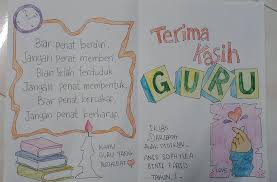 Biar penat berdiri,
Jangan penat memberi.
Biar lelah tertunduk
Jangan penat membentuk.
Biar penat bercakap,
Jangan penat berharap.
KAMU
GURU YANG
TERHEBAT
Terima
Kasih
GURU
IKHLAS
DARIPADA
ANAK DIDIKMU..
TAHUN 1
LOVE